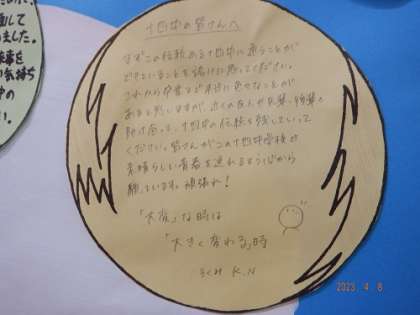 十四中の皆さんへ
まずこの伝統ある十四中に通うことが
できていることを誇りに思ってください。
これから中学など本当に色々なことが
あると思いますが、近くの友人や先輩、後輩と
助け合って、十四中の伝統を残していって
ください。皆さんがこの十四中学校で
素晴らしい青春を送れるよう心から
願っています。頑張れ！
「大変」な時は
「大きく変わる」時
K.N
2023. 4. 8
して
ました。
気持ち
中の
い。